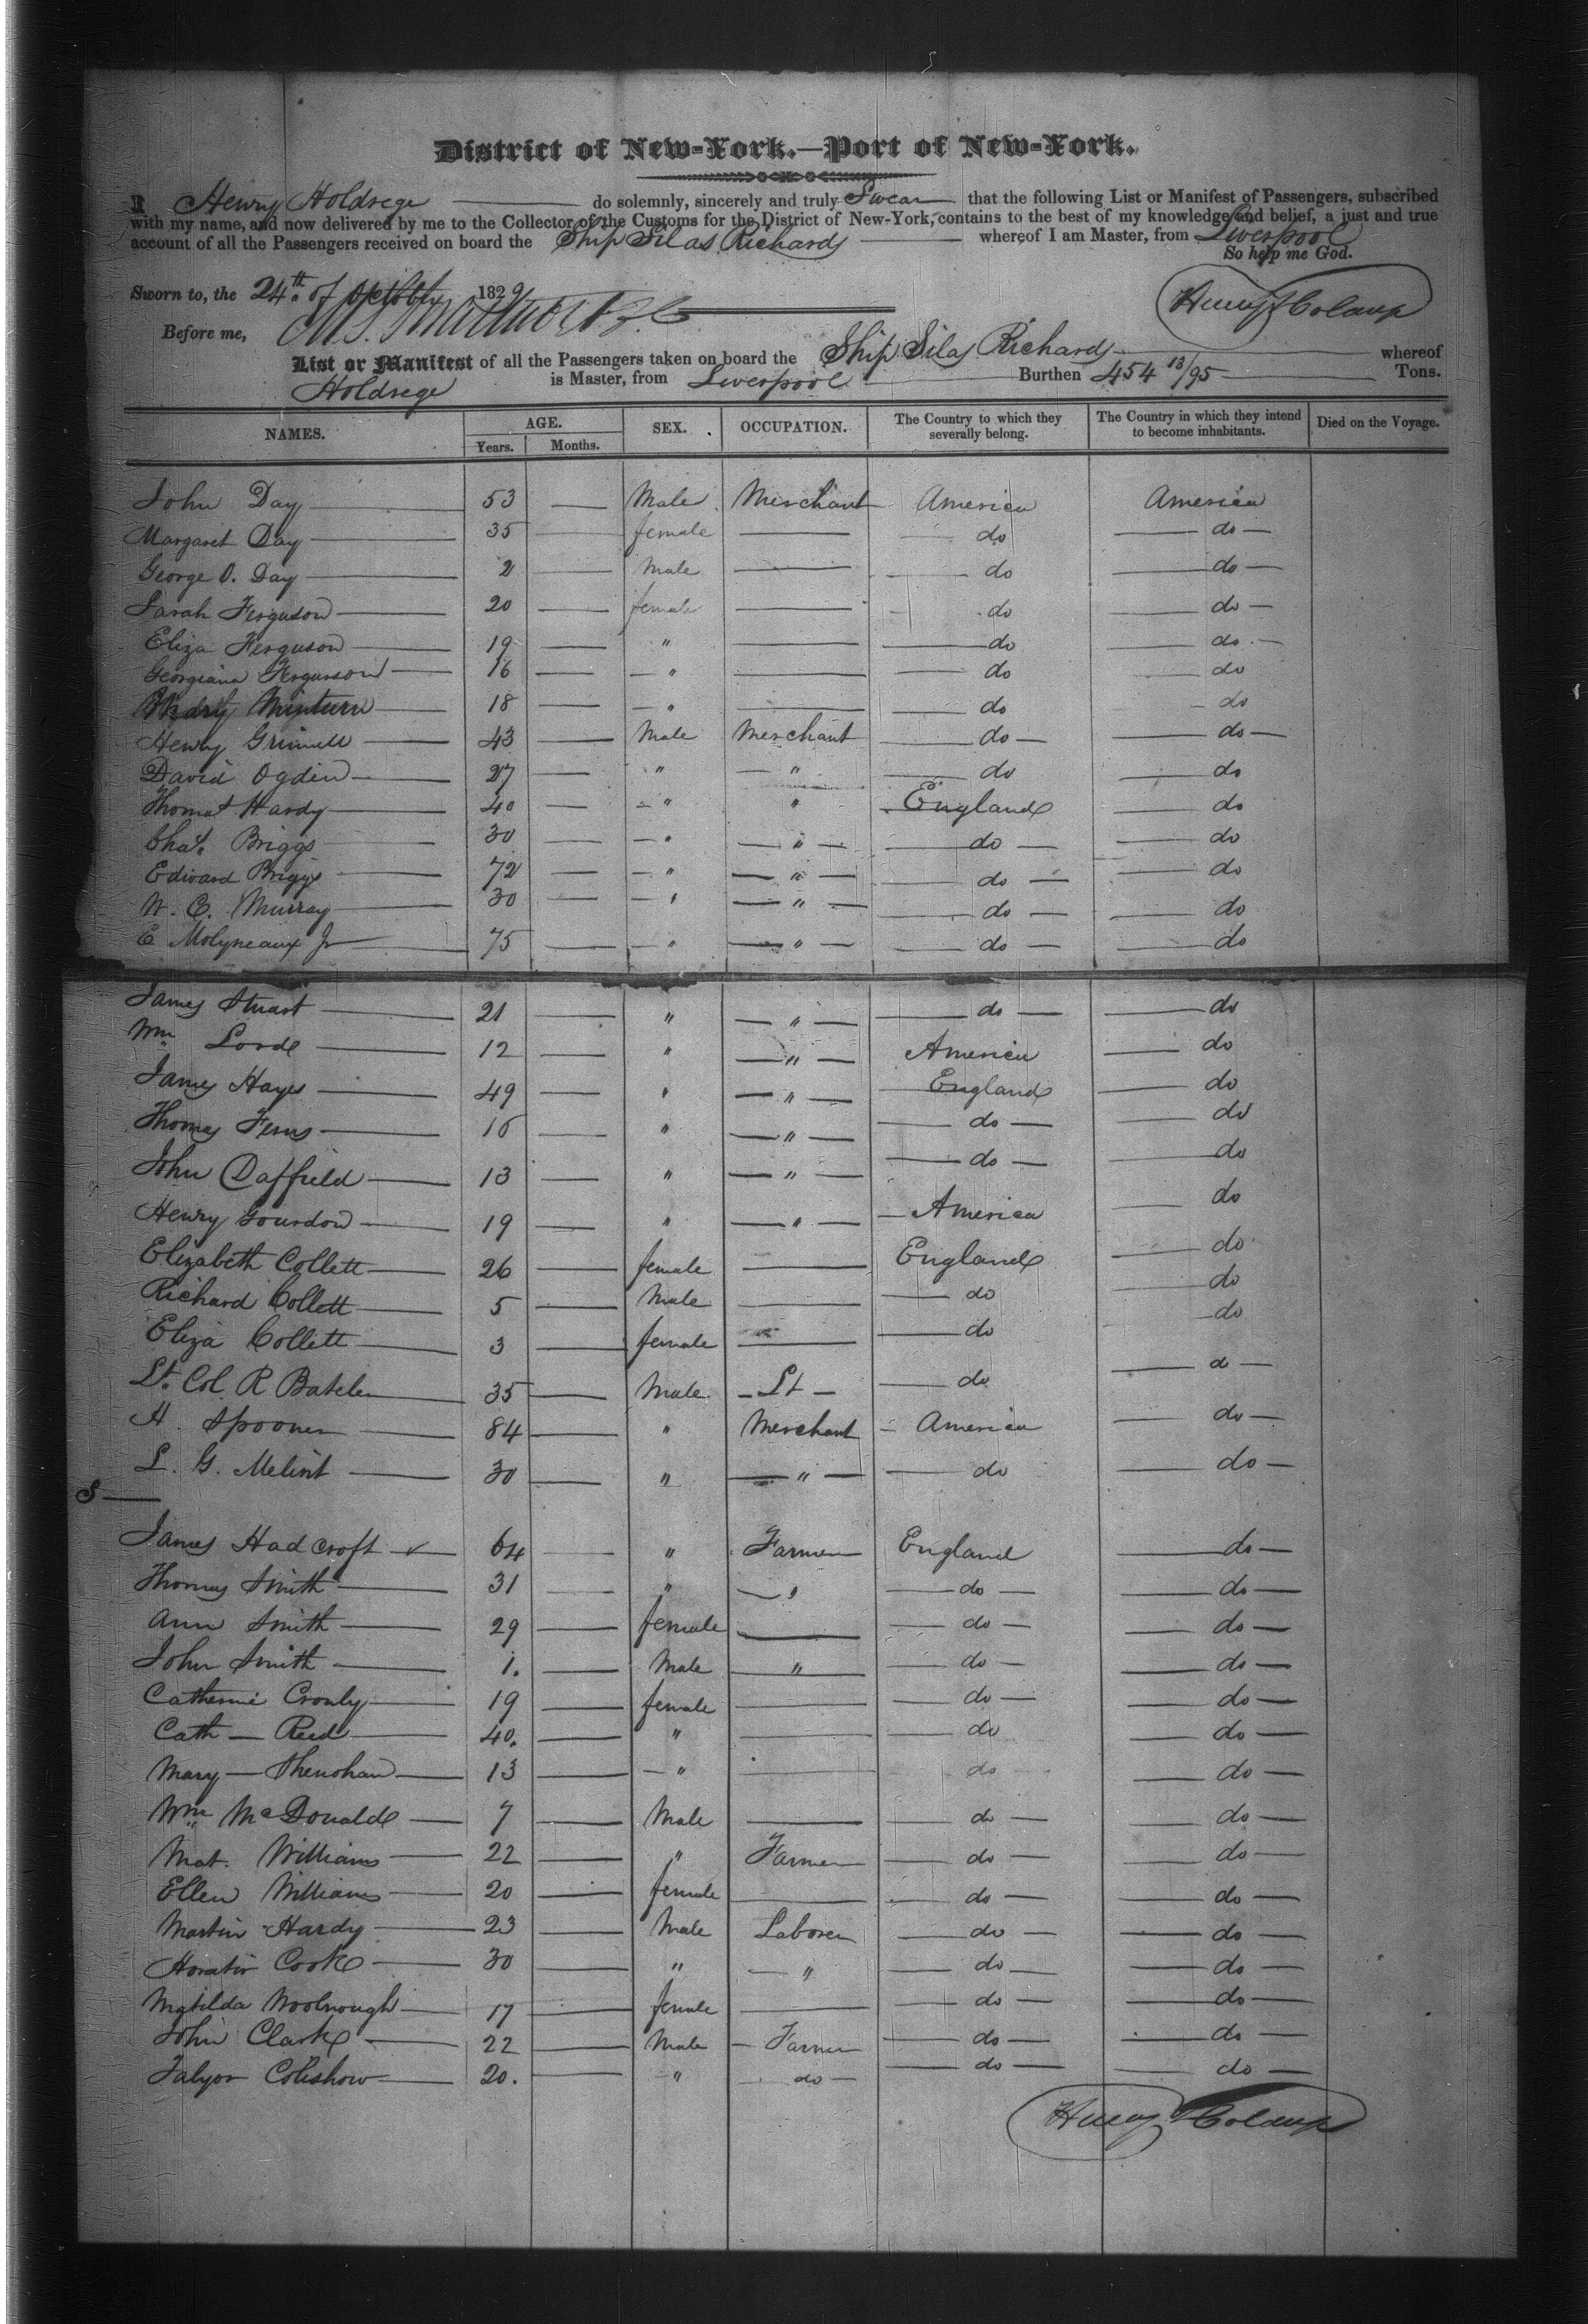 District of New-York.—Port of New-York.
I Henry Holdrege do solemnly, sincerely and truly Swear that the following List or Manifest of Passengers, subscribed
with my name, and now delivered by me to the Collector of the Customs for the District of New-York, contains to the best of my knowledge and belief, a just and true
account of all the Passengers received on board the Ship Silas Richards whereof I am Master, from Liverpool
So help me God.
Sworn to, the 24th of October 1829
Before me,
List or Manifest of all the Passengers taken on board the Ship Silas Richards whereof
Holdrege is Master, from Liverpool Burthen 454 13/95 Tons.
NAMES. AGE. SEX. OCCUPATION. The Country to which they severally belong. The Country in which they intend to become inhabitants. Died on the Voyage.
Years. Months.
John Day 53 Male Merchant America America
Margaret Day 35 female do do
George O. Day 2 Male do do
Sarah Ferguson 20 female do do
Eliza Ferguson 19 " do do
Georgiana Fergusson 16 " do do
Mary Minturn 18 " do do
Henry Grinnell 43 Male Merchant do do
David Ogden 27 " " do do
Thomas Hardy 40 " " England do
Chas. Briggs 30 " " do do
Edward Briggs 72 " " do do
W. C. Murray 30 " " do do
E Molyneaux Jr 75 " " do do
James Stuart 21 " " do do
Wm Lord 12 " " America do
James Hayes 49 " " England do
Thomas Ferns 16 " " do do
John Daffield 13 " " do do
Henry Gourdon 19 " " America do
Elizabeth Collett 26 female England do
Richard Collett 5 Male do do
Eliza Collett 3 female do do
Lt. Col. R 35 Male Lt do do
H. Spooner 84 " Merchant America do
L. G. Melint 30 " " do do
S
James Hadcroft 64 " Farmer England do
Thomas Smith 31 " " do do
Ann Smith 29 female do do
John Smith 1. Male " do do
Catherine Cronly 19 female do do
Cath Reed 40. " do do
Mary Shenohan 13 " do do
Wm McDonald 7 Male do do
Mat. Williams 22 " Farmer do do
Ellen Williams 20 female do do
Martin Hardy 23 Male Laborer do do
Horatio Cooke 30 " " do do
Matilda Woolnough 17 female do do
John Clarke 22 Male Farmer do do
Talyor Colishow 20. " do do do